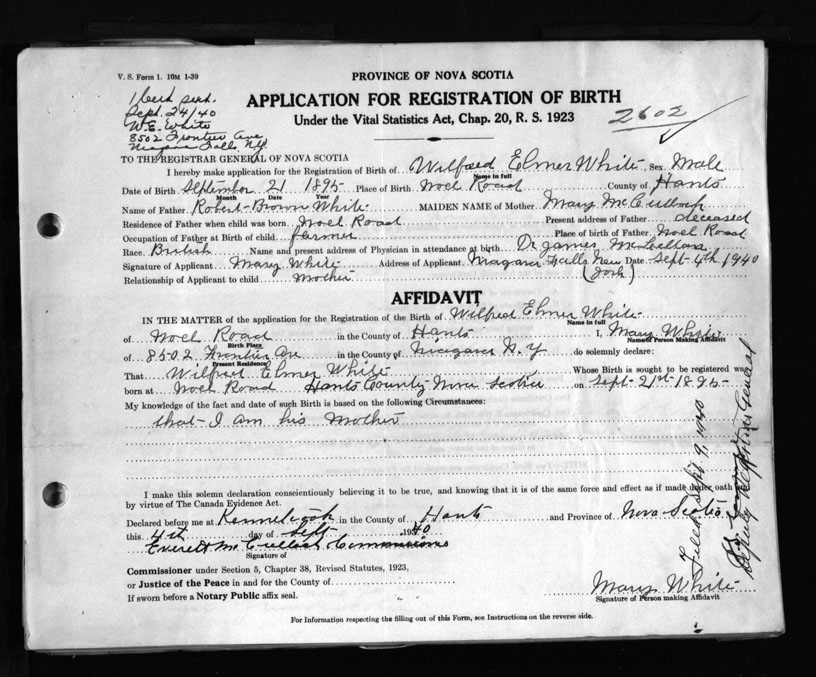 V. S. Form 1. 10M 1-39
PROVINCE OF NOVA SCOTIA
1 cert sent.
Sept. 24/40
W. E. White
8502 Frontier Ave
Niagara Falls N.Y.
APPLICATION FOR REGISTRATION OF BIRTH
2602
Under the Vital Statistics Act, Chap. 20, R. S. 1923
TO THE REGISTRAR GENERAL OF NOVA SCOTIA
I hereby make application for Registration of Birth of Wilfred Elmer White Sex Male
Name in full
Date of Birth September 21 1895 Place of Birth Noel Road County of Hants
Month Date Year
Name of Father Robert Brown White MAIDEN NAME of Mother Mary McCulloch
Residence of Father when child was born Noel Road Present address of Father deceased
Occupation of Father at Birth of child farmer Place of birth of Father Noel Road
Race British Name and present address of Physician in attendance at birth Dr James
Signature of Applicant Mary White Address of Applicant Niagara Falls New Date Sept 4th 1940
(York)
Relationship of Applicant to child Mother
AFFIDAVIT
IN THE MATTER of the application for the Registration of the Birth of Wilfred Elmer White
Name in full
of Noel Road in the County of Hants I, Mary White
Birth Place Name of Person Making Affidavit
of 8502 Frontier Ave in the County of Niagara N.Y do solemnly declare:
Present Residence
That Wilfred Elmer White Whose Birth is sought to be registered was
born at Noel Road Hants County Nova Scotia on Sept 21st 1895
My knowledge of the fact and date of such Birth is based on the following Circumstances:
that I am his Mother
I make this solemn declaration conscientiously believing it to be true, and knowing that it is of the same force and effect as if made under oath
by virtue of The Canada Evidence Act.
Declared before me at Kennetcook in the County of Hants and Province of Nova Scotia
this 4th day of Sept 1940
Everett McCulloch Commissioner
Signature of
Commissioner under Section 5, Chapter 38, Revised Statutes, 1923,
or Justice of the Peace in and for the County of
If sworn before a Notary Public affix seal.
Mary White
Signature of Person making Affidavit
For Information respecting the filling out of this Form, see Instructions on the reverse side.
Filed Sept 9, 1940
Deputy Registrar General